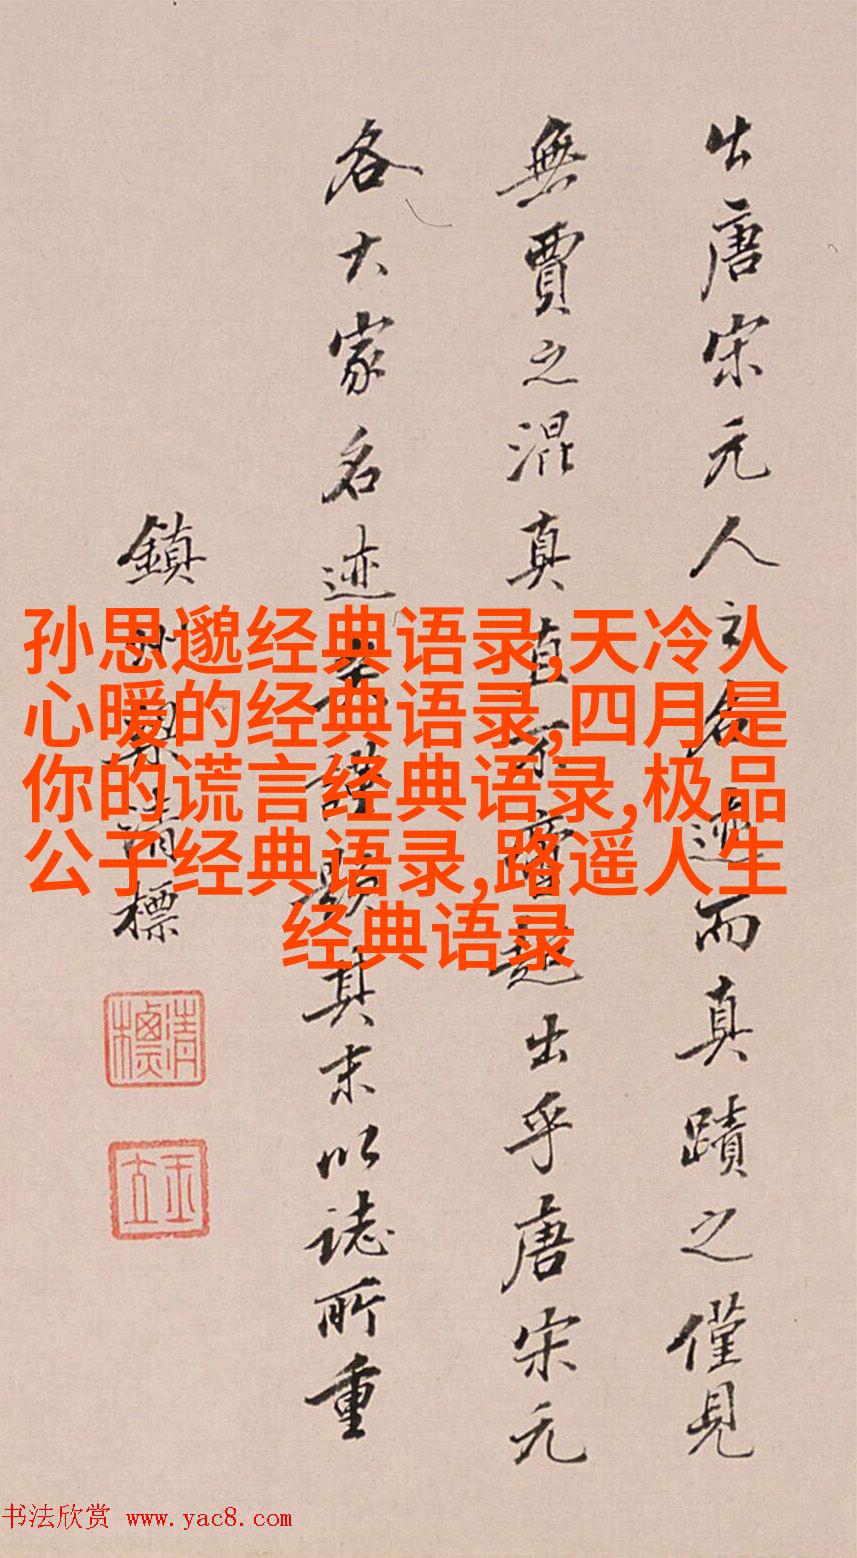 出唐宋元人之名迹而真蹟之僅見
無賈之混真直不啻超出乎唐宋元
各大家名迹題其末以誌所重
鎮州梁清標
清標
玉立
孙思邈经典语录,天冷人
心暖的经典语录,四月是
你的谎言经典语录,极品
公子经典语录,路遥人生
经典语录
书法欣赏 www.yac8.com